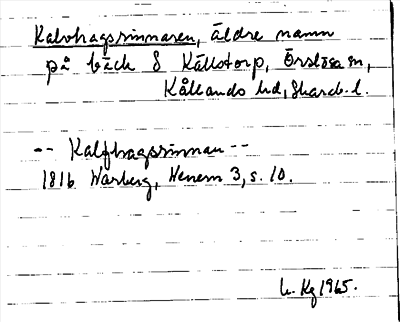 Kalvhagsrinnaren, äldre namn
på bäck S Källstorp, Örslösa sn,
Kållands hd, Skarab. l.
-- Kalfhagsrinnan --
1816 Warberg, Henem 3, s. 10.
L. Kg 1965.